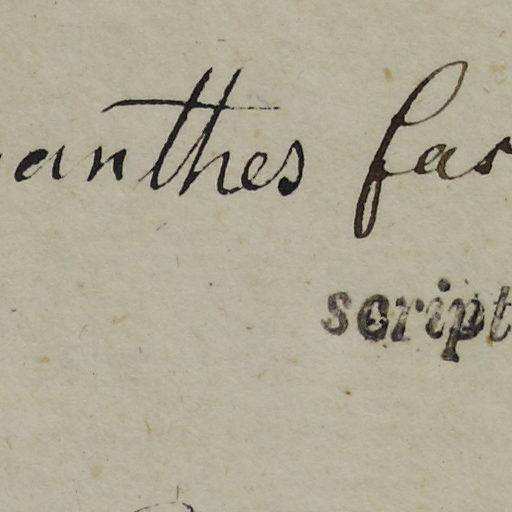 anthes fas
script